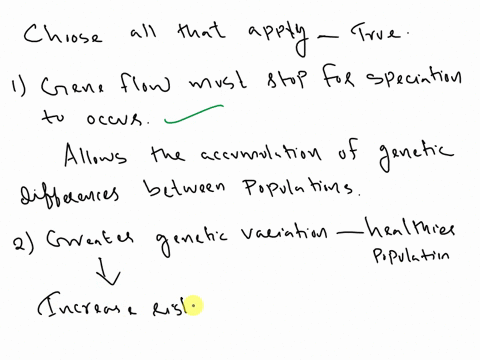 Choose all that apply — True.
1) Gene flow must stop for speciation
to occur. ✓
Allows the accumulation of genetic
differences between Populations.
2) Greater genetic variation — healthier
Population
↓
Increase ris